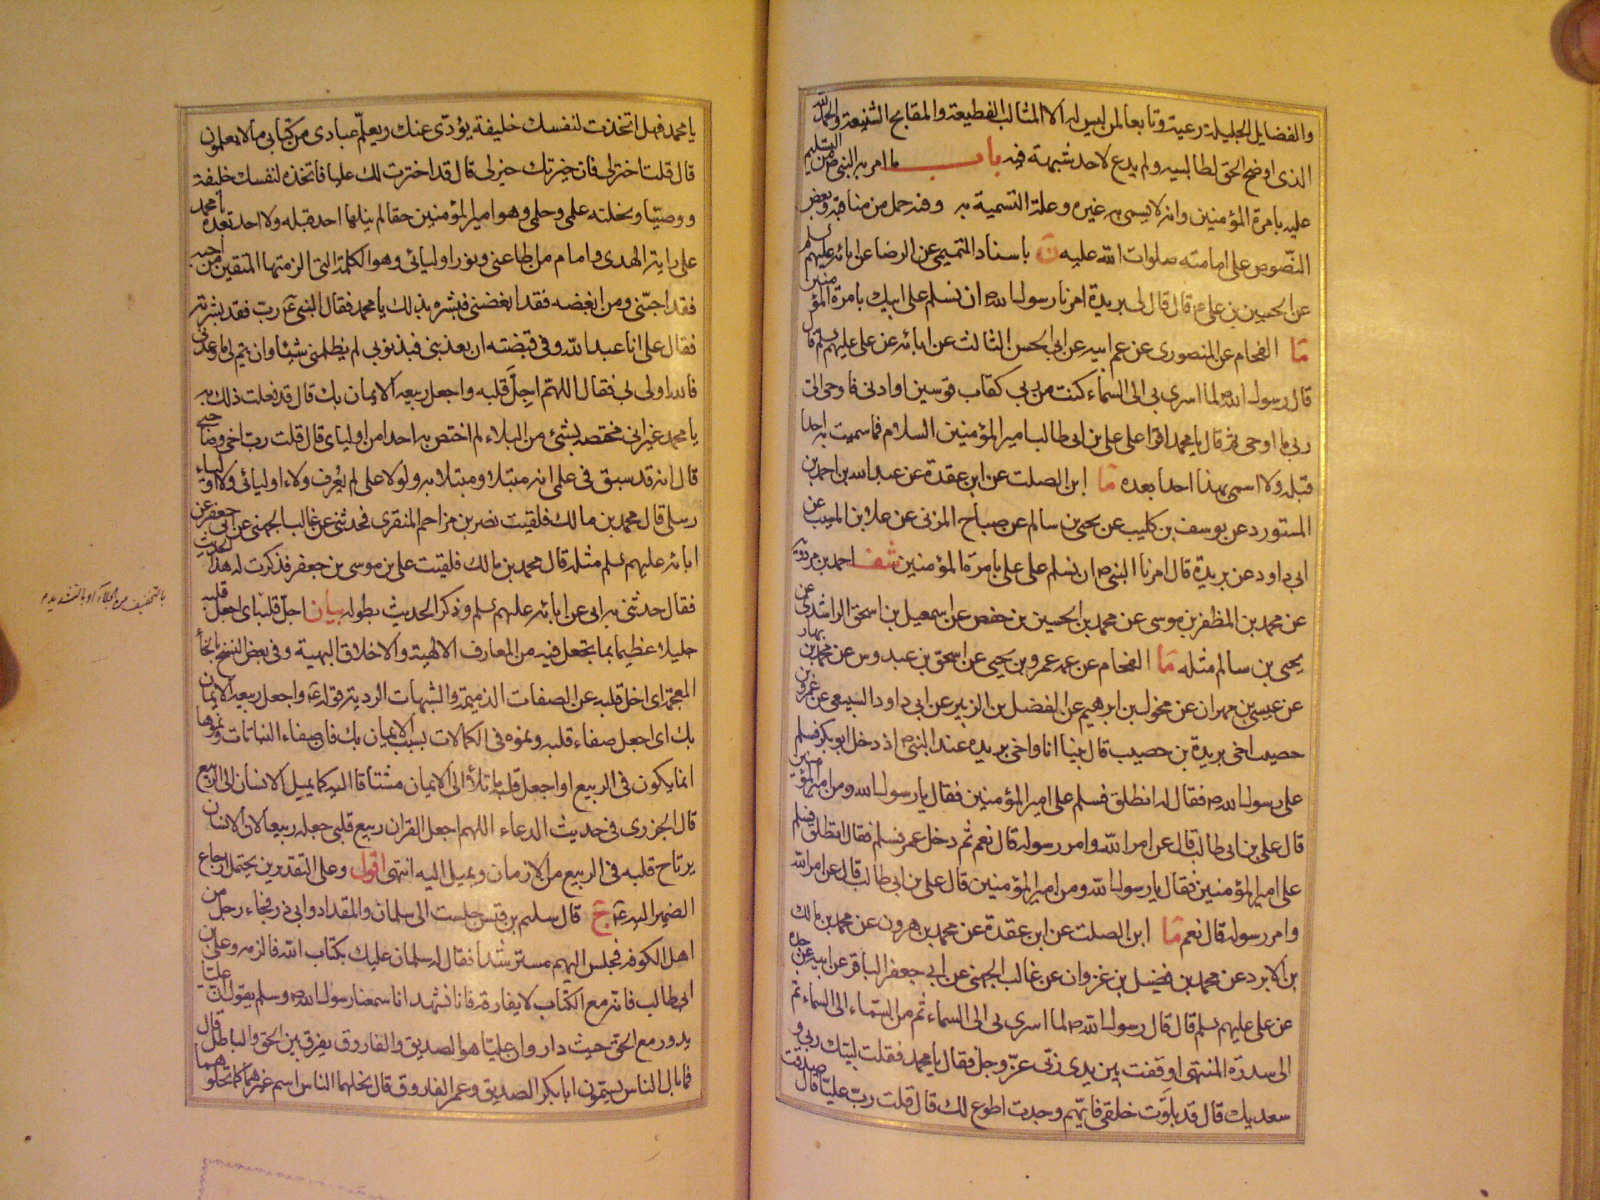 والفضايل الجليلة رعية وتابعا لمن ليس له الا المثالب الفظيعة والمقابح الشنيعة والحمد لله
الذى اوضح الحق لطالبيه ولم يدع لاحد شبهة فيه باب ما امر به النبى من التسليم
عليه بامرة المؤمنين وانه لا يسمى به غيره وعلة التسمية به وفيه جمل من مناقبه وبعض
النصوص على امامته صلوات الله عليه ن باسناد التميمى عن الرضا عن ابائه عليهم السلم
عن الحسين بن على م قال قال لى بريدة امرنا رسول الله ص ان نسلم على ابيك بامرة المؤمنين
ما الفحام عن المنصورى عن عم ابيه عن ابى الحسن الثالث عن ابائه عن على عليهم السلم قال
قال رسول الله ص لما اسرى بى الى السماء كنت من ربى كقاب قوسين او ادنى فاوحى الى
ربى ما اوحى ثم قال يا محمد اقرا على على بن ابى طالب امير المؤمنين السلام فما سميت به احدا
قبله ولا اسمى بهذا احدا بعده ما ابن الصلت عن ابن عقدة عن عبد الله بن احمد بن
المستورد عن يوسف بن كليب عن يحيى بن سالم عن صباح المزنى عن علا بن المسيب عن
ابى داود عن بريدة قال امرنا النبى ص ان نسلم على على بامرة المؤمنين شف احمد بن مردويه
عن محمد بن المظفر بن موسى عن محمد بن الحسين بن حفص عن اسمعيل بن اسحق الراشدى عن
يحيى بن سالم مثله ما الفحام عن عمه عمرو بن يحيى عن اسحق بن عبدوس عن محمد بن بهار
عن عيسى بن مهران عن مخول بن ابرهيم عن الفضل بن الزبير عن ابى داود السبيعى عن عمرو بن
حصيب اخى بريدة بن حصيب قال بينا انا واخى بريدة عند النبى ص اذ دخل ابو بكر فسلم
على رسول الله ص فقال له انطلق فسلم على امير المؤمنين فقال يا رسول الله ومن امير المؤمنين
قال على بن ابى طالب قال عن امر الله وامر رسوله قال نعم ثم دخل عمر فسلم فقال انطلق فسلم
على امير المؤمنين فقال يا رسول الله ومن امير المؤمنين قال على بن ابى طالب قال عن امر الله
وامر رسوله قال نعم ما ابن الصلت عن ابن عقدة عن محمد بن هرون عن محمد بن مالك
بن الابرد عن محمد بن فضيل بن غزوان عن غالب الجهنى عن ابى جعفر الباقر عن ابيه عن جده
عن على عليهم السلم قال قال رسول الله ص لما اسرى بى الى السماء ثم من السماء الى السماء ثم
الى سدرة المنتهى اوقفت بين يدى ربى عز وجل فقال يا محمد فقلت لبيك ربى و
سعديك قال قد بلوت خلقى فايهم وجدت اطوع لك قال قلت رب عليا قال صدقت
يا محمد فهل اتخذت لنفسك خليفة يؤدى عنك ويعلم عبادى من كتابى ما لا يعلمون
قال قلت اختر لى فان خيرتك خير لى قال قد اخترت لك عليا فاتخذه لنفسك خليفة
ووصيا ونحلته علمى وحلمى وهو امير المؤمنين حقا لم ينلها احد قبله ولا احد بعده يا محمد
على راية الهدى وامام من اطاعنى ونور اوليائى وهو الكلمة التى الزمتها المتقين من احبه
فقد احبنى ومن ابغضه فقد ابغضنى فبشره بذلك يا محمد فقال النبى ص رب فقد بشرته
فقال على انا عبد الله وفى قبضته ان يعذبنى فبذنوبى لم يظلمنى شيئا وان يتم لى ما وعدنى
فالله اولى بى فقال اللهم اجل قلبه واجعل ربيعه الايمان بك قال قد فعلت ذلك به
يا محمد غير انى مختصه بشئ من البلاء لم اختص به احدا من اوليائى قال قلت رب اخى وصاحبى
قال انه قد سبق فى علمى انه مبتلا ومبتلا به ولو لا على لم يعرف ولاء اوليائى ولا اولياء
رسلى قال محمد بن مالك فلقيت نصر بن مزاحم المنقرى فحدثنى عن غالب الجهنى عن ابى جعفر عن
ابائه عليهم السلم مثله قال محمد بن مالك فلقيت على بن موسى بن جعفر فذكرت له هذا الحديث
فقال حدثنى به ابى عن ابائه عليهم السلم وذكر الحديث بطوله بيان اجل قلبه اى اجعل قلبه
جليلا عظيما بما تجعل فيه من المعارف الالهية والاخلاق البهية وفى بعض النسخ بالخاء
المعجمة اى اخل قلبه عن الصفات الذميمة والشبهات الردية قوله واجعل ربيعه الايمان
بك اى اجعل صفاء قلبه ونموه فى الكمالات بسبب الايمان بك فان صفاء النباتات ونموها
انما يكون فى الربيع او اجعل قلبه مائلا الى الايمان مشتاقا اليه كما يميل الانسان الى الربيع
قال الجزرى فى حديث الدعاء اللهم اجعل القران ربيع قلبى جعله ربيعا لان الانسان
يرتاح قلبه فى الربيع من الازمان ويميل اليه انتهى اقول وعلى التقديرين يحتمل ارجاع
الضمير اليه ج قال سليم بن قيس جلست الى سلمان والمقداد وابى ذر فجاء رجل من
اهل الكوفة فجلس اليهم مسترشدا فقال له سلمان عليك بكتاب الله فالزمه وعلى بن
ابى طالب فانه مع الكتاب لا يفارقه فانا نشهد انا سمعنا رسول الله ص وسلم يقول ان عليا
يدور مع الحق حيث دار وان عليا هو الصديق والفاروق يفرق بين الحق والباطل قال
فما بال الناس يسمون ابا بكر الصديق وعمر الفاروق قال نحلهما الناس اسم غيرهما كما نحلوهما